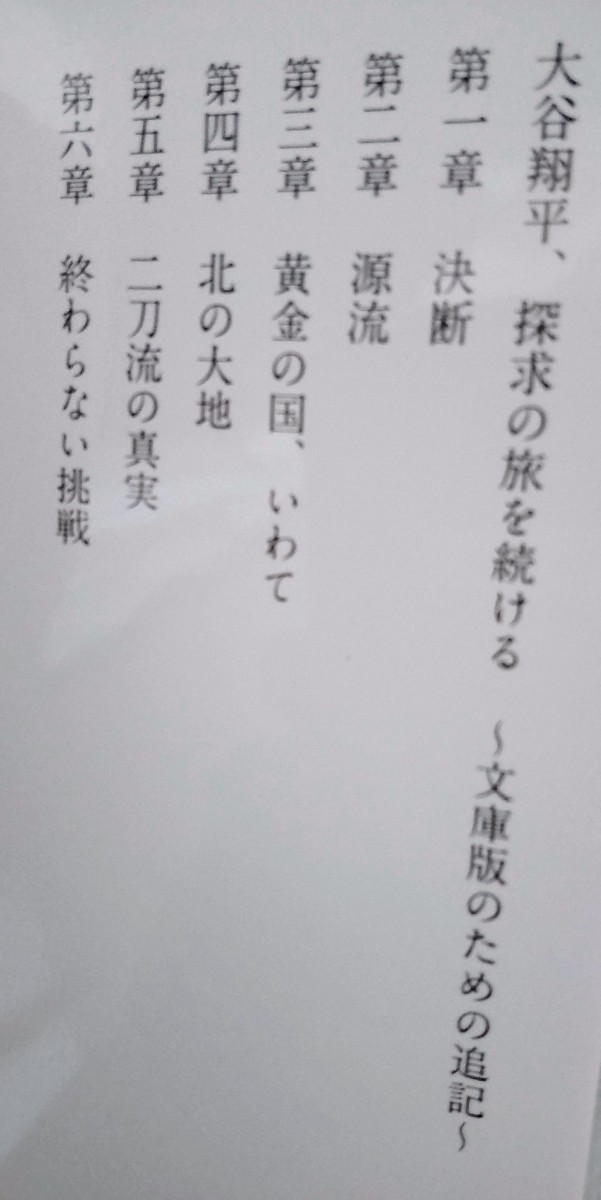 大谷翔平、探求の旅を続ける　〜文庫版のための追記〜
第一章　決断
第二章　源流
第三章　黄金の国、いわて
第四章　北の大地
第五章　二刀流の真実
第六章　終わらない挑戦